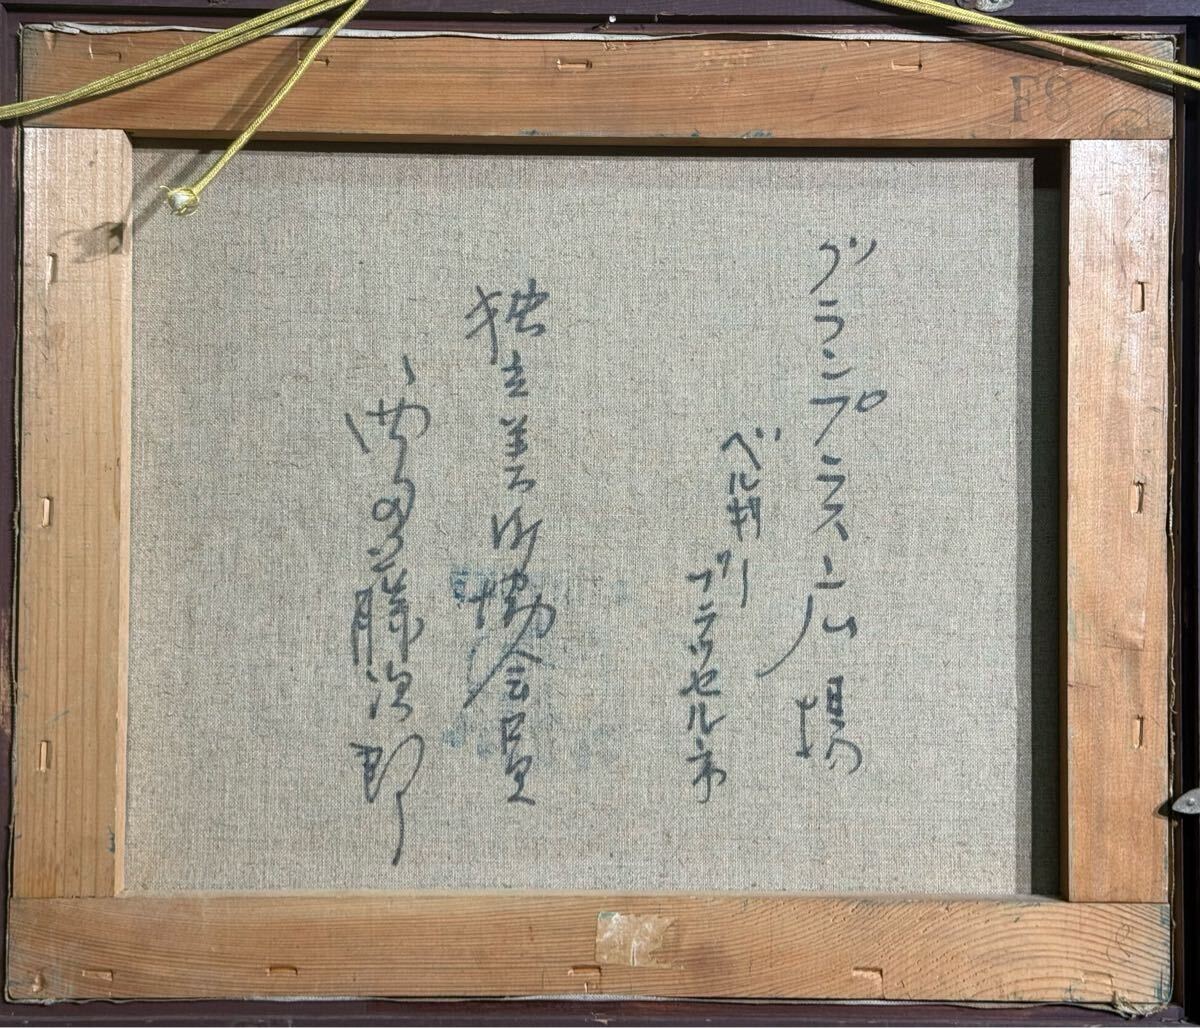 F8
グランプラス広場
ベルギー
ブラッセル市
独立美術協会員
藤次郎